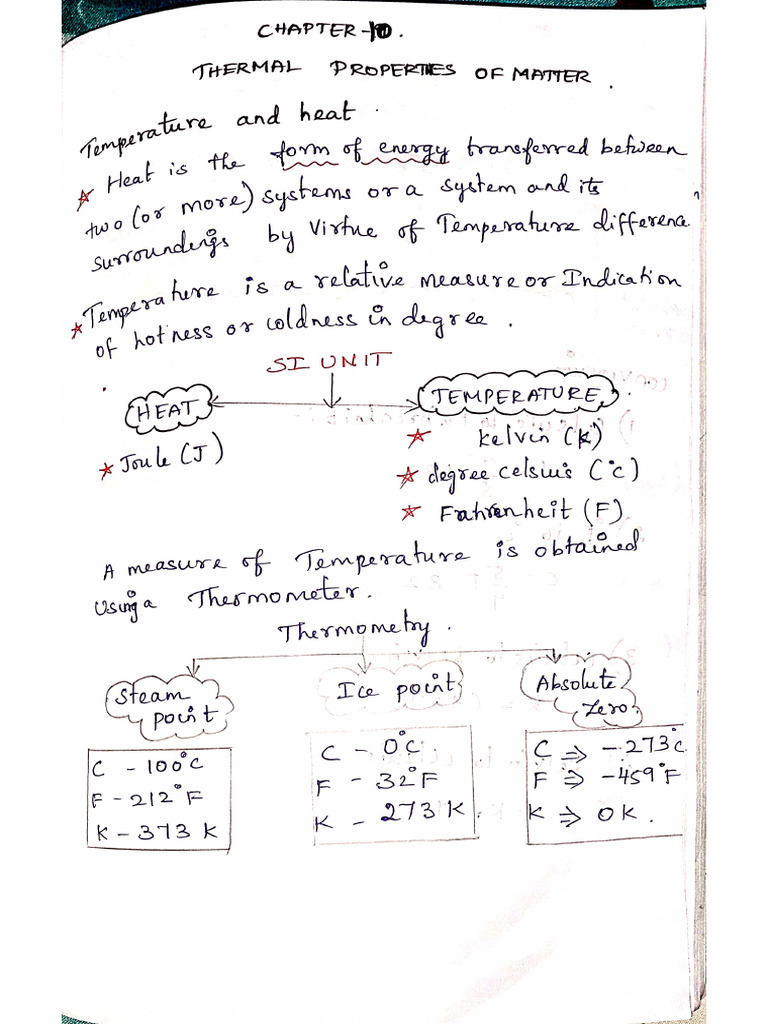 CHAPTER-10.
THERMAL PROPERTIES OF MATTER.
Temperature and heat.
★ Heat is the form of energy transferred between
two (or more) systems or a system and its
surroundings by virtue of Temperature difference.
★ Temperature is a relative measure or Indication
of hotness or coldness in degree.
SI UNIT
HEAT
TEMPERATURE.
★ Joule (J)
★ kelvin (K)
★ degree celsius (°c)
★ Fahrenheit (F)
A measure of Temperature is obtained
Using a Thermometer.
Thermometry.
Steam
point
C - 100°C
F - 212°F
K - 373 K
Ice point
C - 0°C.
F - 32°F
K - 273 K.
Absolute
Zero.
C ⇒ -273°c
F ⇒ -459°F
K ⇒ 0K.